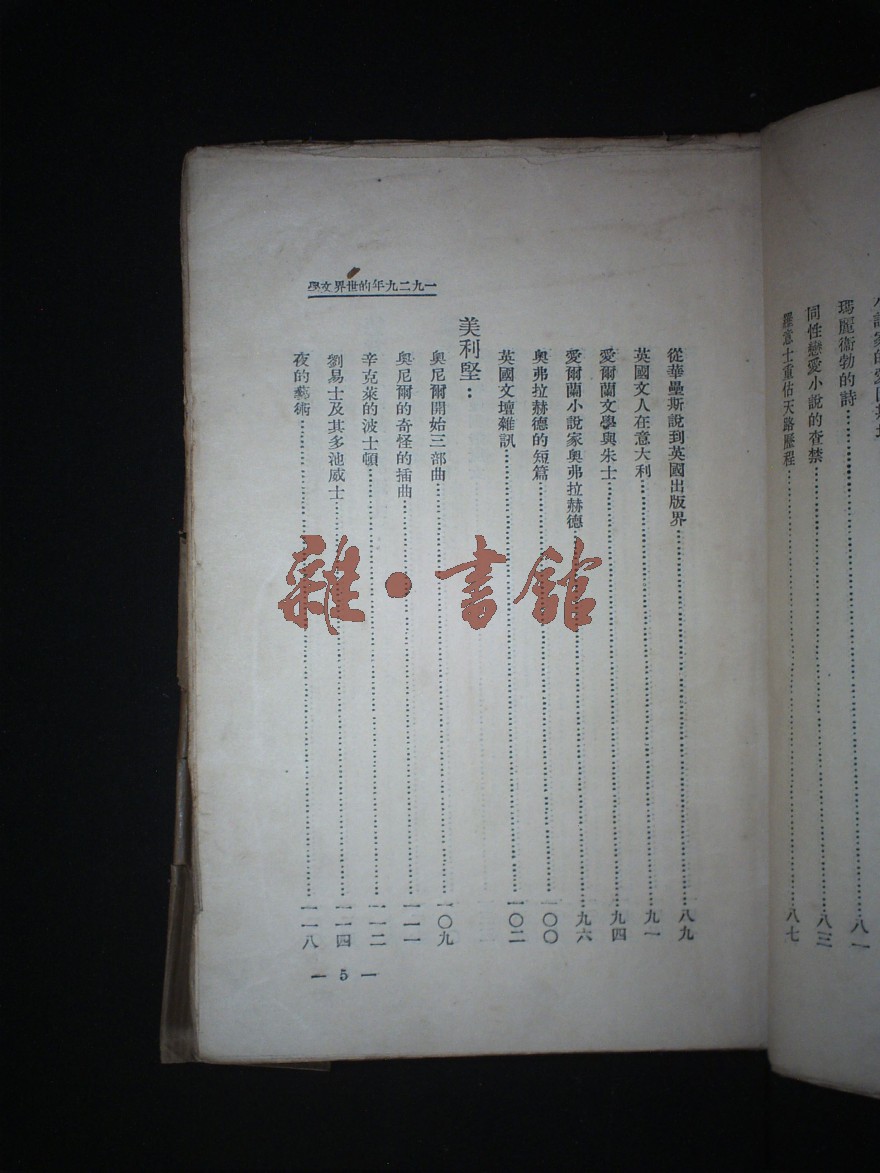 瑪麗衞勃的詩……八一
同性戀愛小說的查禁……八三
羅意士重估天路歷程……八七
一九二九年的世界文學
從華壘斯說到英國出版界……八九
英國文人在意大利……九一
愛爾蘭文學與朱士……九四
愛爾蘭小說家奧弗拉赫德……九六
奧弗拉赫德的短篇……一〇〇
英國文壇雜訊……一〇二
美利堅：
奧尼爾開始三部曲……一〇九
奧尼爾的奇怪的插曲……一一一
辛克萊的波士頓……一一二
劉易士及其多池威士……一一四
夜的藝術……一一八
— 5 —
雜·書館